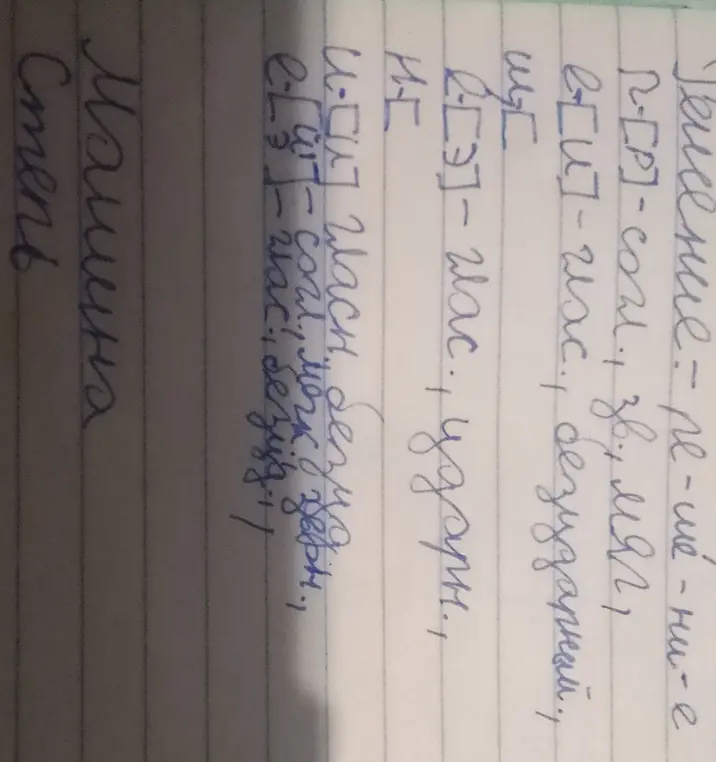 Решение - ре-ше́-ни-е
р-[р']-согл., зв., мяг,
е-[и]-глас., безударный.,
ш-[
е́-[э]-глас., ударн.,
н-[
и-[и] гласн. безуд
е-[й']-согл., мягк
[э]-глас., безуд.,
Машинна
Степь